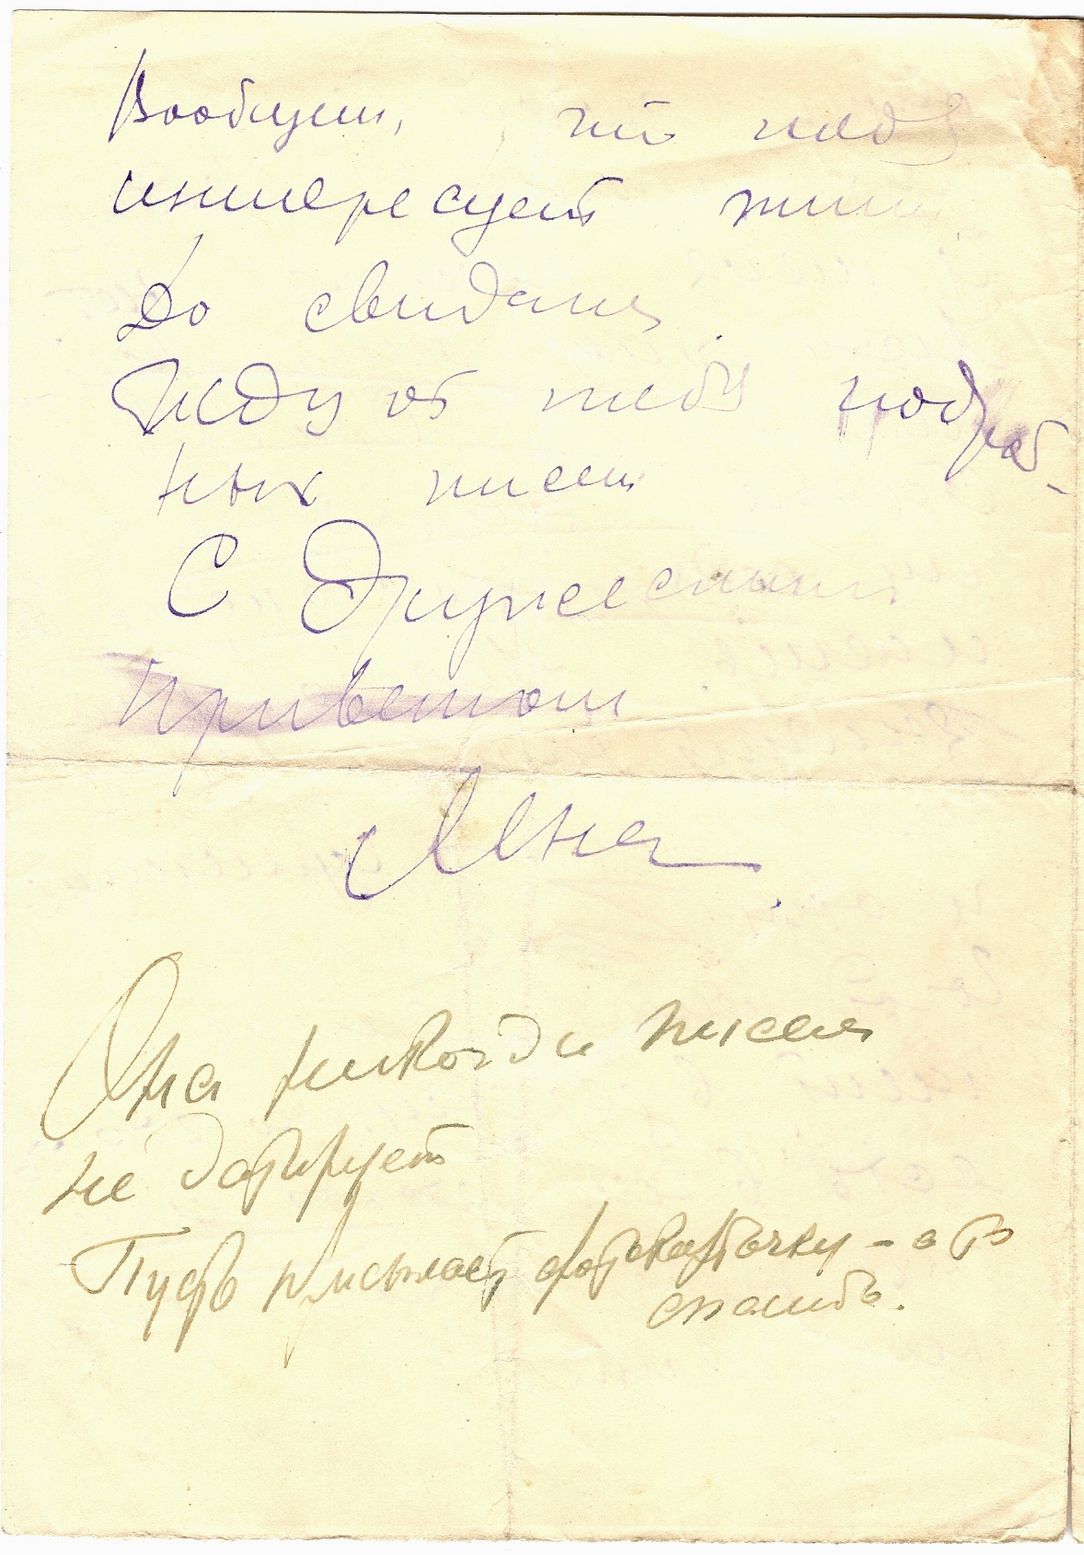 Вообщем, что тебя
интересует пиши
До свидания
Жду от тебя подроб-
ных писем
С Дружеским
приветом
Яна
Она никогда писем
не датирует
Пусть присылает фотокарточку - а то